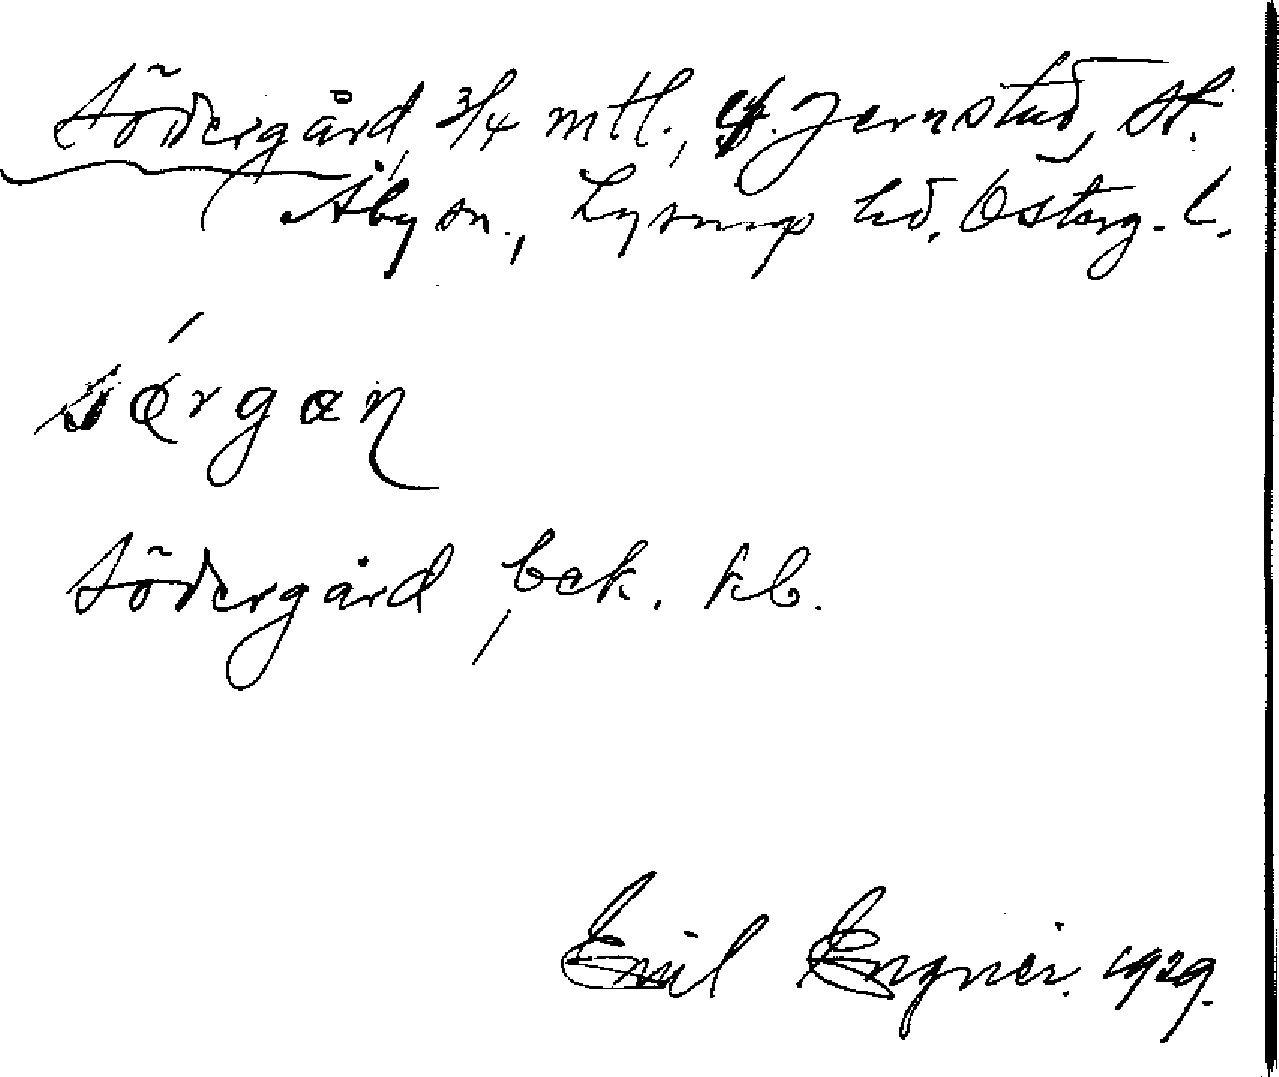 Södergård, 3/4 mtl., Jernstad, St.
Åby sn., Lysings hd. Österg. l.
sǿrgan
Södergård, bek. kb.
Emil Engner. 1929.